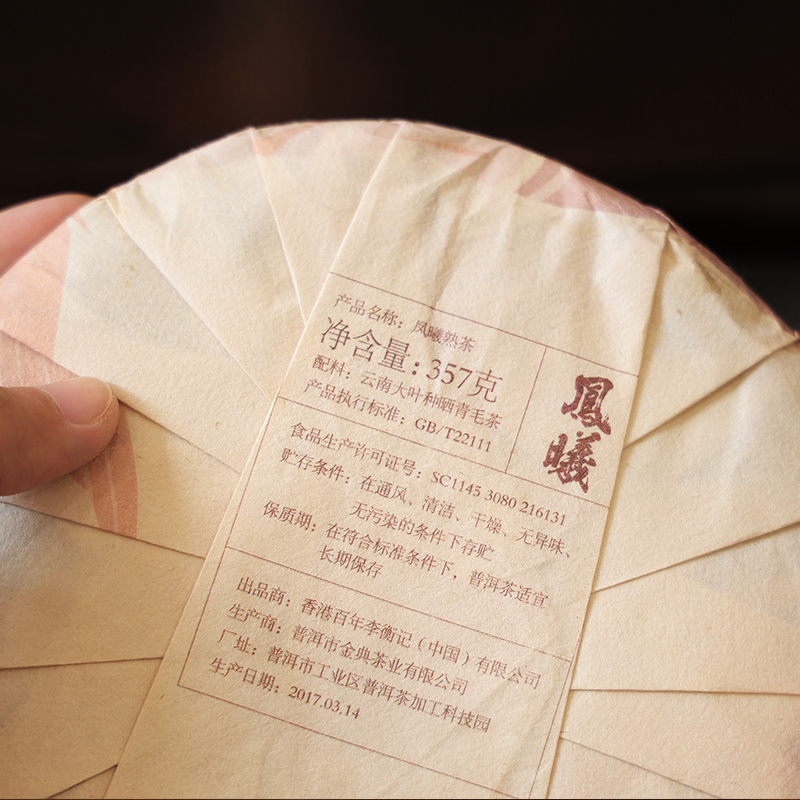 产品名称：凤曦熟茶
净含量：357克
配料：云南大叶种晒青毛茶
产品执行标准：GB/T22111
鳳曦
食品生产许可证号：SC1145 3080 216131
贮存条件：在通风、清洁、干燥、无异味、
无污染的条件下存贮
保质期：在符合标准条件下，普洱茶适宜
长期保存
出品商：香港百年李衡记（中国）有限公司
生产商：普洱市金典茶业有限公司
厂址：普洱市工业区普洱茶加工科技园
生产日期：2017.03.14